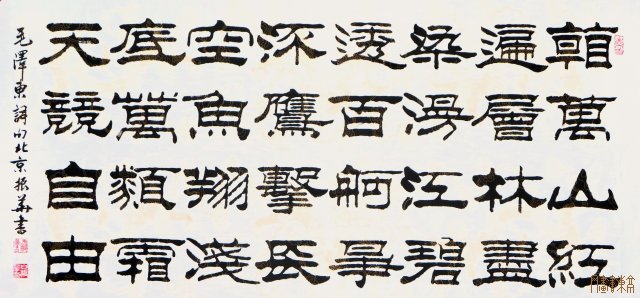 看萬山紅
遍層林盡
染漫江碧
透百舸爭
流鷹擊長
空魚翔淺
底萬類霜
天競自由
毛澤東詞句北京振華書